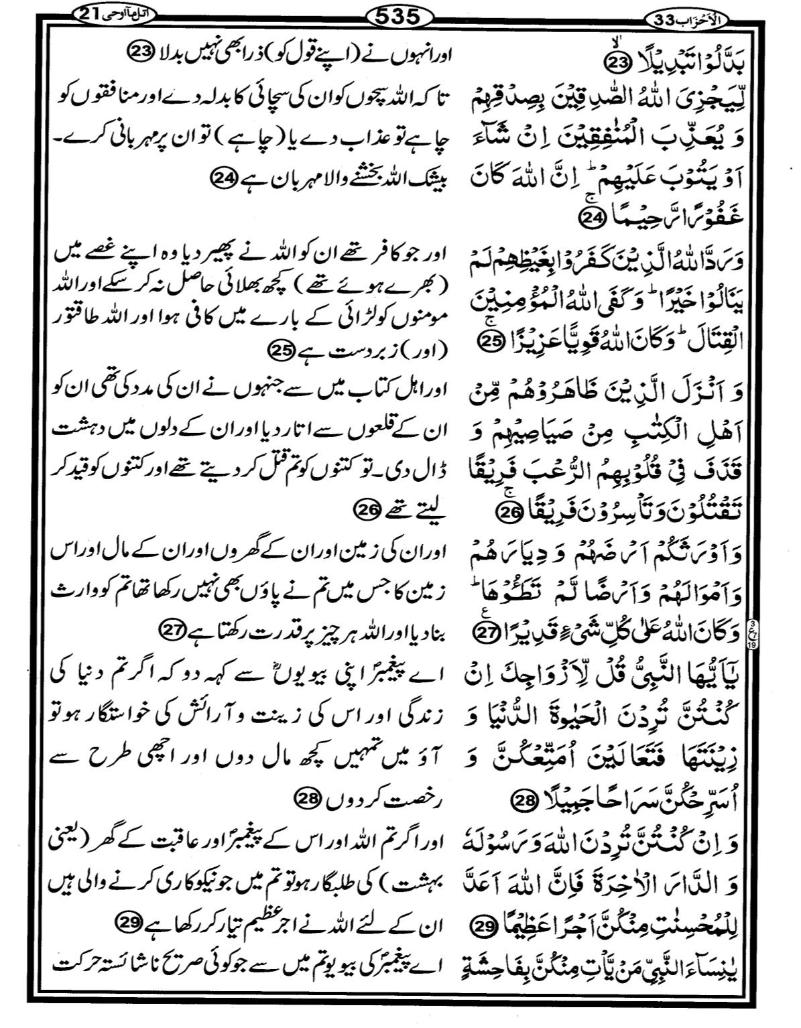 اَلْاَحْزَاب 33
535
اتل مآ اوحی 21
بَدَّلُوْا تَبْدِيْلًا ۙ 23
لِّيَجْزِيَ اللّٰهُ الصّٰدِقِيْنَ بِصِدْقِهِمْ
وَ يُعَذِّبَ الْمُنٰفِقِيْنَ اِنْ شَآءَ
اَوْ يَتُوْبَ عَلَيْهِمْ ؕ اِنَّ اللّٰهَ كَانَ
غَفُوْرًا رَّحِيْمًا ۚ 24
وَ رَدَّ اللّٰهُ الَّذِيْنَ كَفَرُوْا بِغَيْظِهِمْ لَمْ
يَنَالُوْا خَيْرًا ؕ وَ كَفَى اللّٰهُ الْمُؤْمِنِيْنَ
الْقِتَالَ ؕ وَ كَانَ اللّٰهُ قَوِيًّا عَزِيْزًا ۚ 25
وَ اَنْزَلَ الَّذِيْنَ ظَاهَرُوْهُمْ مِّنْ
اَهْلِ الْكِتٰبِ مِنْ صَيَاصِيْهِمْ وَ
قَذَفَ فِيْ قُلُوْبِهِمُ الرُّعْبَ فَرِيْقًا
تَقْتُلُوْنَ وَ تَاْسِرُوْنَ فَرِيْقًا ۚ 26
وَ اَوْرَثَكُمْ اَرْضَهُمْ وَ دِيَارَهُمْ
وَ اَمْوَالَهُمْ وَ اَرْضًا لَّمْ تَطَـُٔوْهَا ؕ
وَ كَانَ اللّٰهُ عَلٰى كُلِّ شَيْءٍ قَدِيْرًا ع 27
3 ع 19
يٰۤاَيُّهَا النَّبِيُّ قُلْ لِّاَزْوَاجِكَ اِنْ
كُنْتُنَّ تُرِدْنَ الْحَيٰوةَ الدُّنْيَا وَ
زِيْنَتَهَا فَتَعَالَيْنَ اُمَتِّعْكُنَّ وَ
اُسَرِّحْكُنَّ سَرَاحًا جَمِيْلًا 28
وَ اِنْ كُنْتُنَّ تُرِدْنَ اللّٰهَ وَ رَسُوْلَهٗ
وَ الدَّارَ الْاٰخِرَةَ فَاِنَّ اللّٰهَ اَعَدَّ
لِلْمُحْسِنٰتِ مِنْكُنَّ اَجْرًا عَظِيْمًا 29
يٰنِسَآءَ النَّبِيِّ مَنْ يَّاْتِ مِنْكُنَّ بِفَاحِشَةٍ
اور انہوں نے (اپنے قول کو) ذرا بھی نہیں بدلا 23
تا کہ اللہ سچوں کو ان کی سچائی کا بدلہ دے اور منافقوں کو
چاہے تو عذاب دے یا (چاہے) تو ان پر مہربانی کرے۔
بیشک اللہ بخشنے والا مہربان ہے 24
اور جو کافر تھے ان کو اللہ نے پھیر دیا وہ اپنے غصے میں
(بھرے ہوئے تھے) کچھ بھلائی حاصل نہ کر سکے اور اللہ
مومنوں کو لڑائی کے بارے میں کافی ہوا اور اللہ طاقتور
(اور) زبردست ہے 25
اور اہل کتاب میں سے جنہوں نے ان کی مدد کی تھی ان کو
ان کے قلعوں سے اتار دیا اور ان کے دلوں میں دہشت
ڈال دی۔ تو کتنوں کو تم قتل کر دیتے تھے اور کتنوں کو قید کر
لیتے تھے 26
اور ان کی زمین اور ان کے گھروں اور ان کے مال اور اس
زمین کا جس میں تم نے پاؤں بھی نہیں رکھا تھا تم کو وارث
بنا دیا اور اللہ ہر چیز پر قدرت رکھتا ہے 27
اے پیغمبرؐ اپنی بیویوںؓ سے کہہ دو کہ اگر تم دنیا کی
زندگی اور اس کی زینت و آرائش کی خواستگار ہو تو
آؤ میں تمہیں کچھ مال دوں اور اچھی طرح سے
رخصت کر دوں 28
اور اگر تم اللہ اور اس کے پیغمبرؐ اور عاقبت کے گھر (یعنی
بہشت) کی طلبگار ہو تو تم میں جو نیکوکاری کرنے والی ہیں
ان کے لئے اللہ نے اجر عظیم تیار کر رکھا ہے 29
اے پیغمبرؐ کی بیویو تم میں سے جو کوئی صریح ناشائستہ حرکت